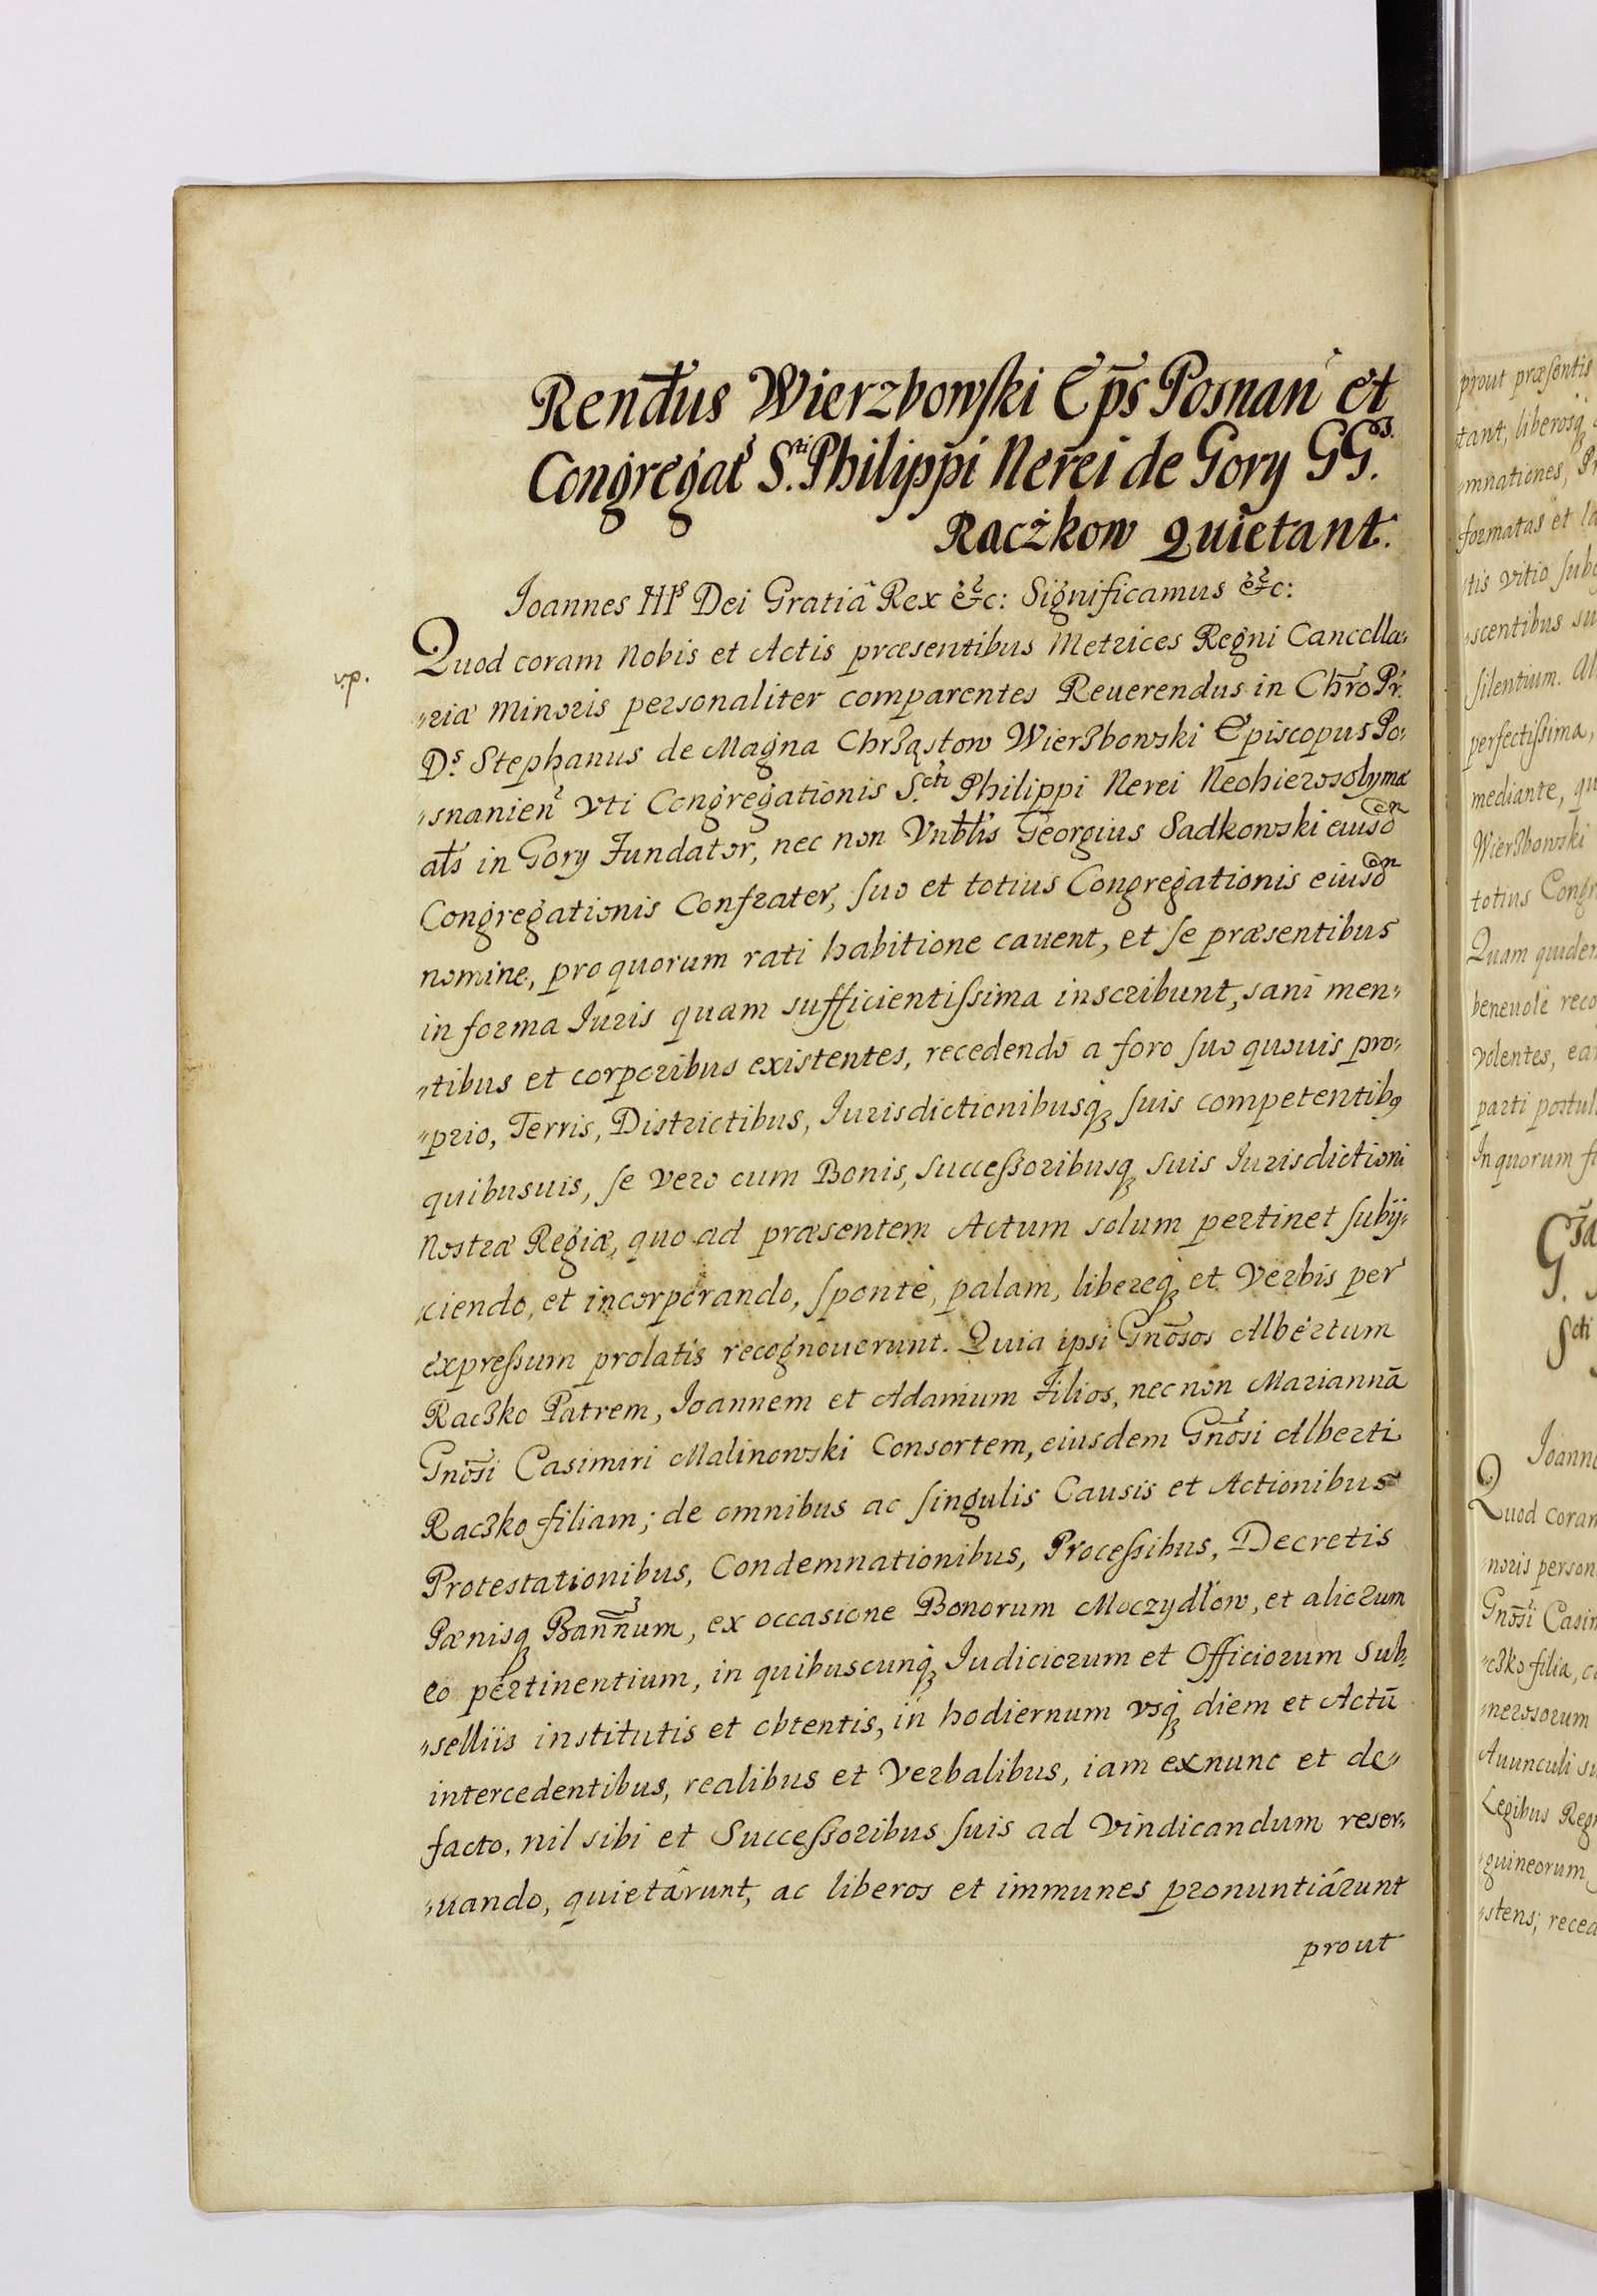 Rendus Wierzbowski Eps Posnan et
Congregat S.ti Philippi Nerei de Gory GG.os
Raczkow Quietant.
Joannes IIIs Dei Gratiâ Rex &c: Significamus &c:
v.p.
Quod coram Nobis et Actis præsentibus Metrices Regni Cancella„
„riæ Minoris personaliter comparentes Reuerendus in Chro Pr.
Ds. Stephanus de Magna Chrząstow Wierzbowski Episcopus Po„
„snanien vti Congregationis S.cti Philippi Nerei Neohierosolymæ
als in Gory Fundator, nec non Vnblis Georgius Sadkowski eiusdem
Congregationis Confrater, suo et totius Congregationis eiusdem
nomine, pro quorum rati habitione cauent, et se præsentibus
in forma Juris quam sufficientissima inscribunt, sani men„
„tibus et corporibus existentes, recedendo a foro suo quouis pro„
„prio, Terris, Districtibus, Jurisdictionibusq; suis competentibq
quibusuis, se vero cum Bonis, successoribusq; suis Jurisdictioni
Nostræ Regiæ, quo ad præsentem Actum solum pertinet subij„
„ciendo, et incorporando, sponte, palam, libereq; et Verbis per
expressum prolatis recognouerunt. Quia ipsi Gnosos Albertum
Raczko Patrem, Joannem et Adamum Filios, nec non Mariannā
Gnosi Casimiri Malinowski Consortem, eiusdem Gnosi Alberti
Raczko filiam; de omnibus ac singulis Causis et Actionibus
Protestationibus, Condemnationibus, Processibus, Decretis
Pœnisq; Bannnum, ex occasione Bonorum Moczydłow, et aliorum
eo pertinentium, in quibuscunq; Judiciorum et Officiorum Sub„
„selliis institutis et obtentis, in hodiernum vsq; diem et Actū
intercedentibus, realibus et Verbalibus, iam exnunc et de„
facto, nil sibi et Successoribus suis ad Vindicandum reser„
„uando, quietârunt, ac liberos et immunes pronuntiârunt
prout
prout præsentis
tant, liberosq;
„mnationes,
formatas et
„tis vitio
„scentibus
silentium.
perfectissima,
mediante,
Wierzbowski
totius
Quam
beneuole
volentes,
parti
In quorum
Quod
„noris
Gnosi
„czko filia,
„nerosorum
Auunculi
Legibus
„guineorum
„stens;